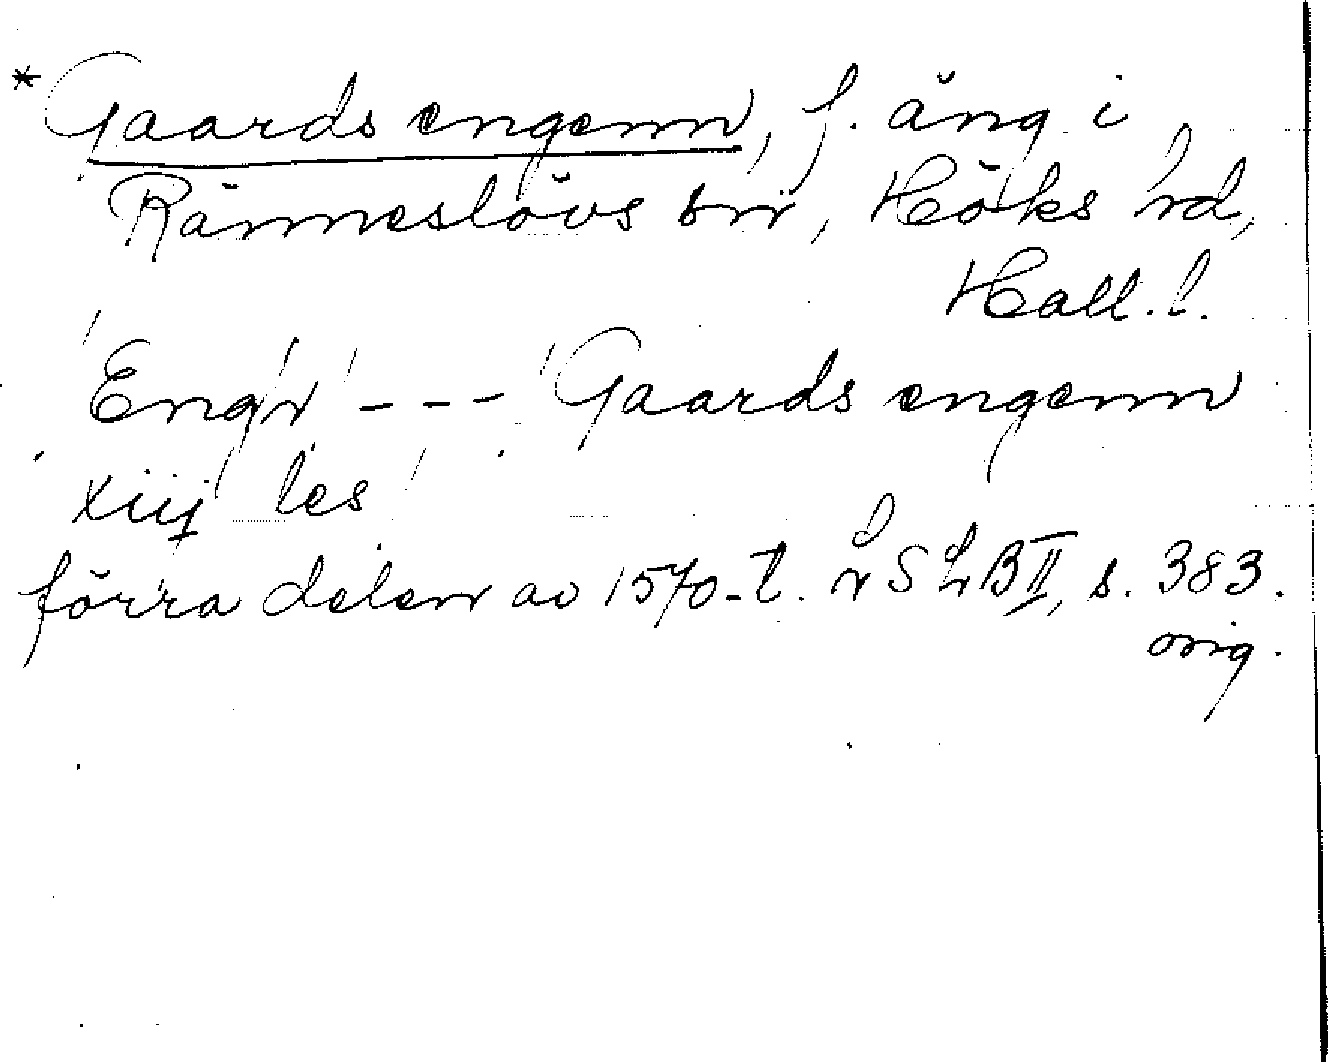 * Gaards engenn, f. äng i
Ränneslövs sn, Höks hd,
Hall. l.
Engh --- Gaards engenn
xiiij les
förra delen av 1570-t. ÄSLB II, s. 383.
orig.